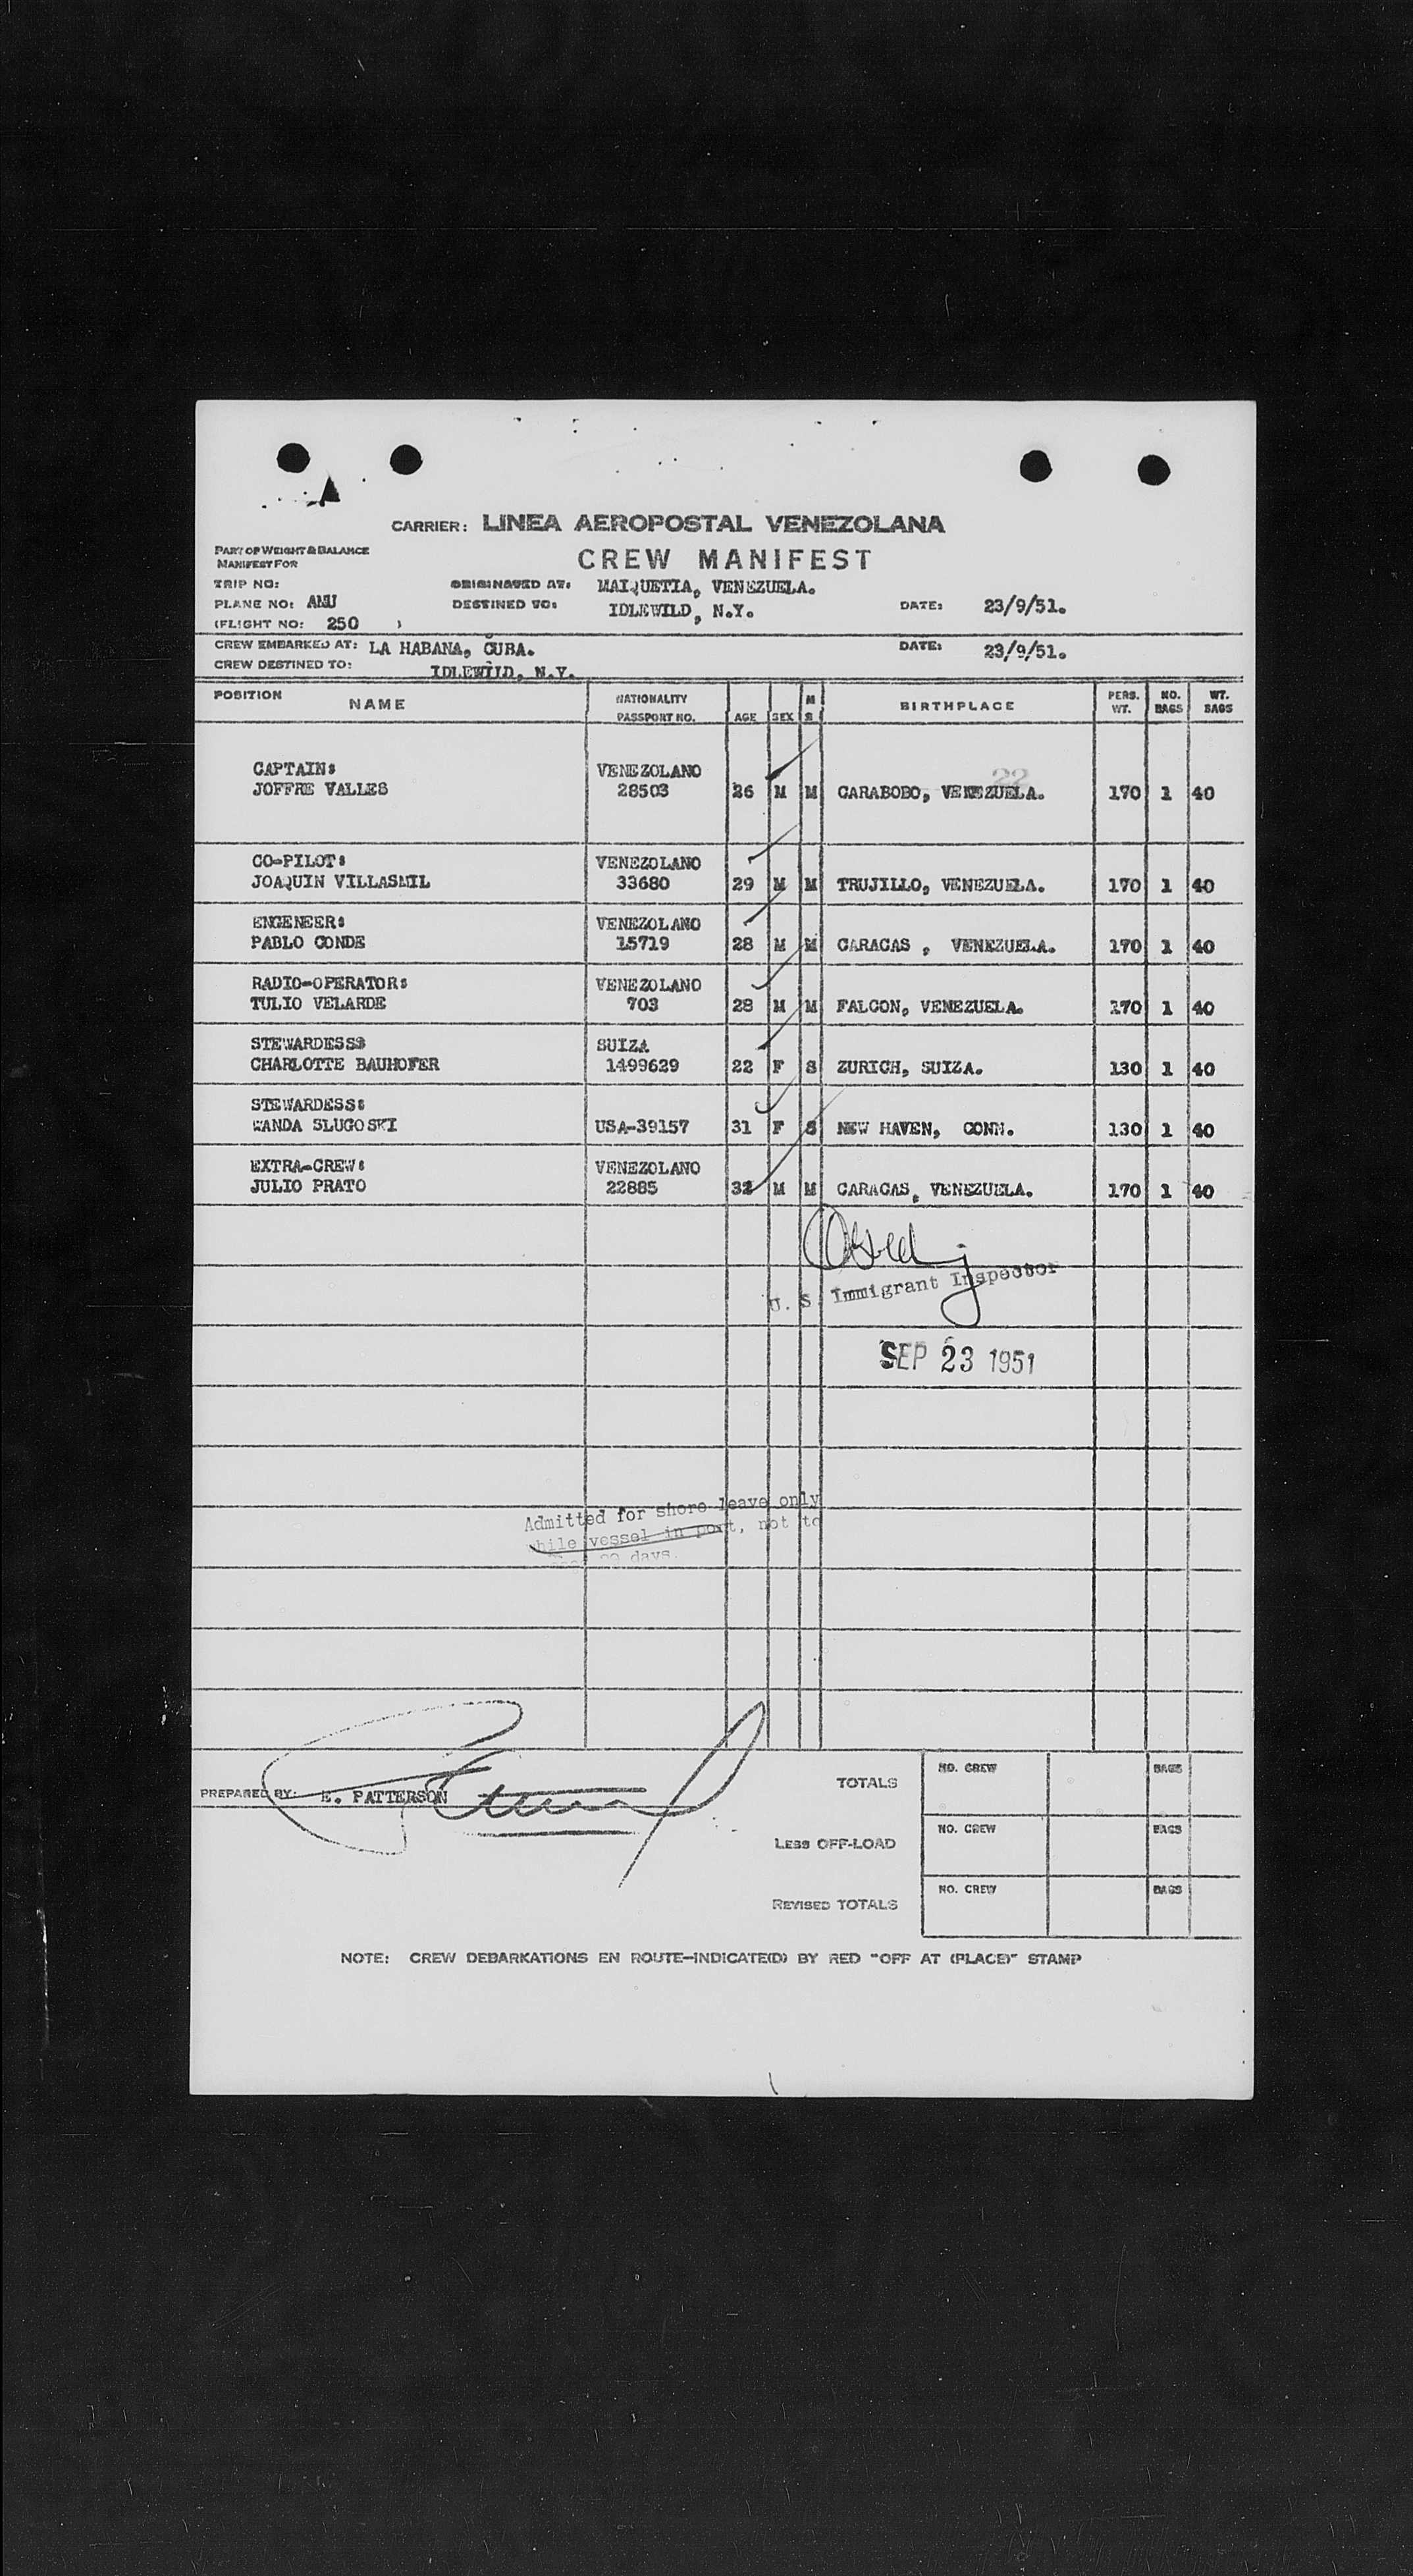 CARRIER: LINEA AEROPOSTAL VENEZOLANA
PART OF WEIGHT & BALANCE
MANIFEST FOR
CREW MANIFEST
TRIP NO: ORIGINATED AT: MAIQUETIA, VENEZUELA.
PLANE NO: AMU DESTINED TO: IDLEWILD, N.Y. DATE: 23/9/51.
(FLIGHT NO: 250 )
CREW EMBARKED AT: LA HABANA, CUBA. DATE: 23/9/51.
CREW DESTINED TO: IDLEWILD, N.Y.
POSITION NAME NATIONALITY PASSPORT NO. AGE SEX M S BIRTHPLACE PERS. WT. NO. BAGS WT. BAGS
CAPTAIN: VENEZOLANO
JOFFRE VALLES 28503 26 M M CARABOBO, VENEZUELA. 170 1 40
CO-PILOT: VENEZOLANO
JOAQUIN VILLASMIL 33680 29 M M TRUJILLO, VENEZUELA. 170 1 40
ENGENEER: VENEZOLANO
PABLO CONDE 15719 28 M M CARACAS , VENEZUELA. 170 1 40
RADIO-OPERATOR: VENEZOLANO
TULIO VELARDE 703 28 M M FALCON, VENEZUELA. 170 1 40
STEWARDESS: SUIZA
CHARLOTTE BAUHOFER 1499629 22 F S ZURICH, SUIZA. 130 1 40
STEWARDESS:
WANDA SLUGOSKI USA-39157 31 F S NEW HAVEN, CONN. 130 1 40
EXTRA-CREW: VENEZOLANO
JULIO PRATO 22885 32 M M CARACAS, VENEZUELA. 170 1 40
U. S. Immigrant Inspector
SEP 23 1951
Admitted for shore leave only
while vessel in port, not to
days.
PREPARED BY: E. PATTERSON
TOTALS NO. CREW BAGS
LESS OFF-LOAD NO. CREW BAGS
REVISED TOTALS NO. CREW BAGS
NOTE: CREW DEBARKATIONS EN ROUTE-INDICATE(D) BY RED "OFF AT (PLACE)" STAMP